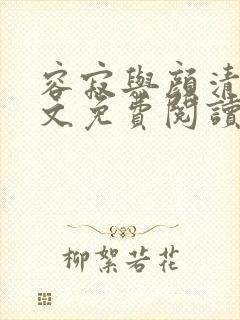 容寂與顏清
文免費閱讀
柳絮若花